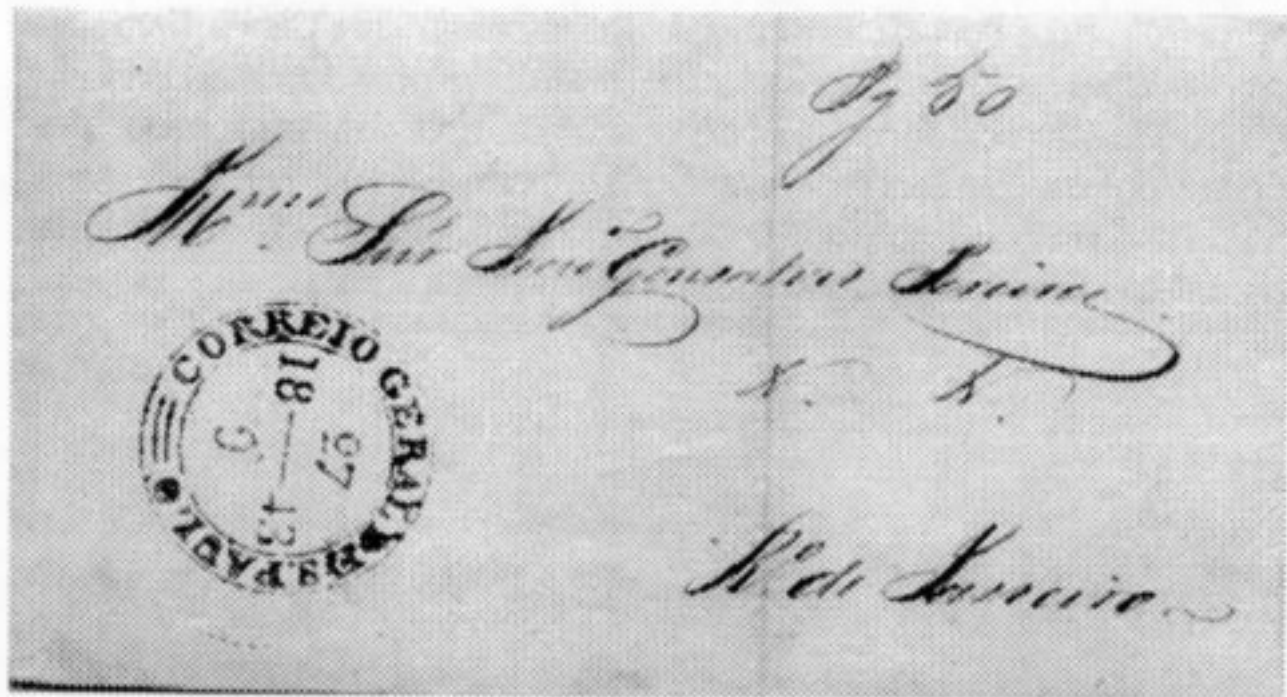 Pg 60
Illmo. Snr João Gonsalves Pereira
R.º de Janeiro
CORREIO GERAL DE S.PAULO
27
18—43
9